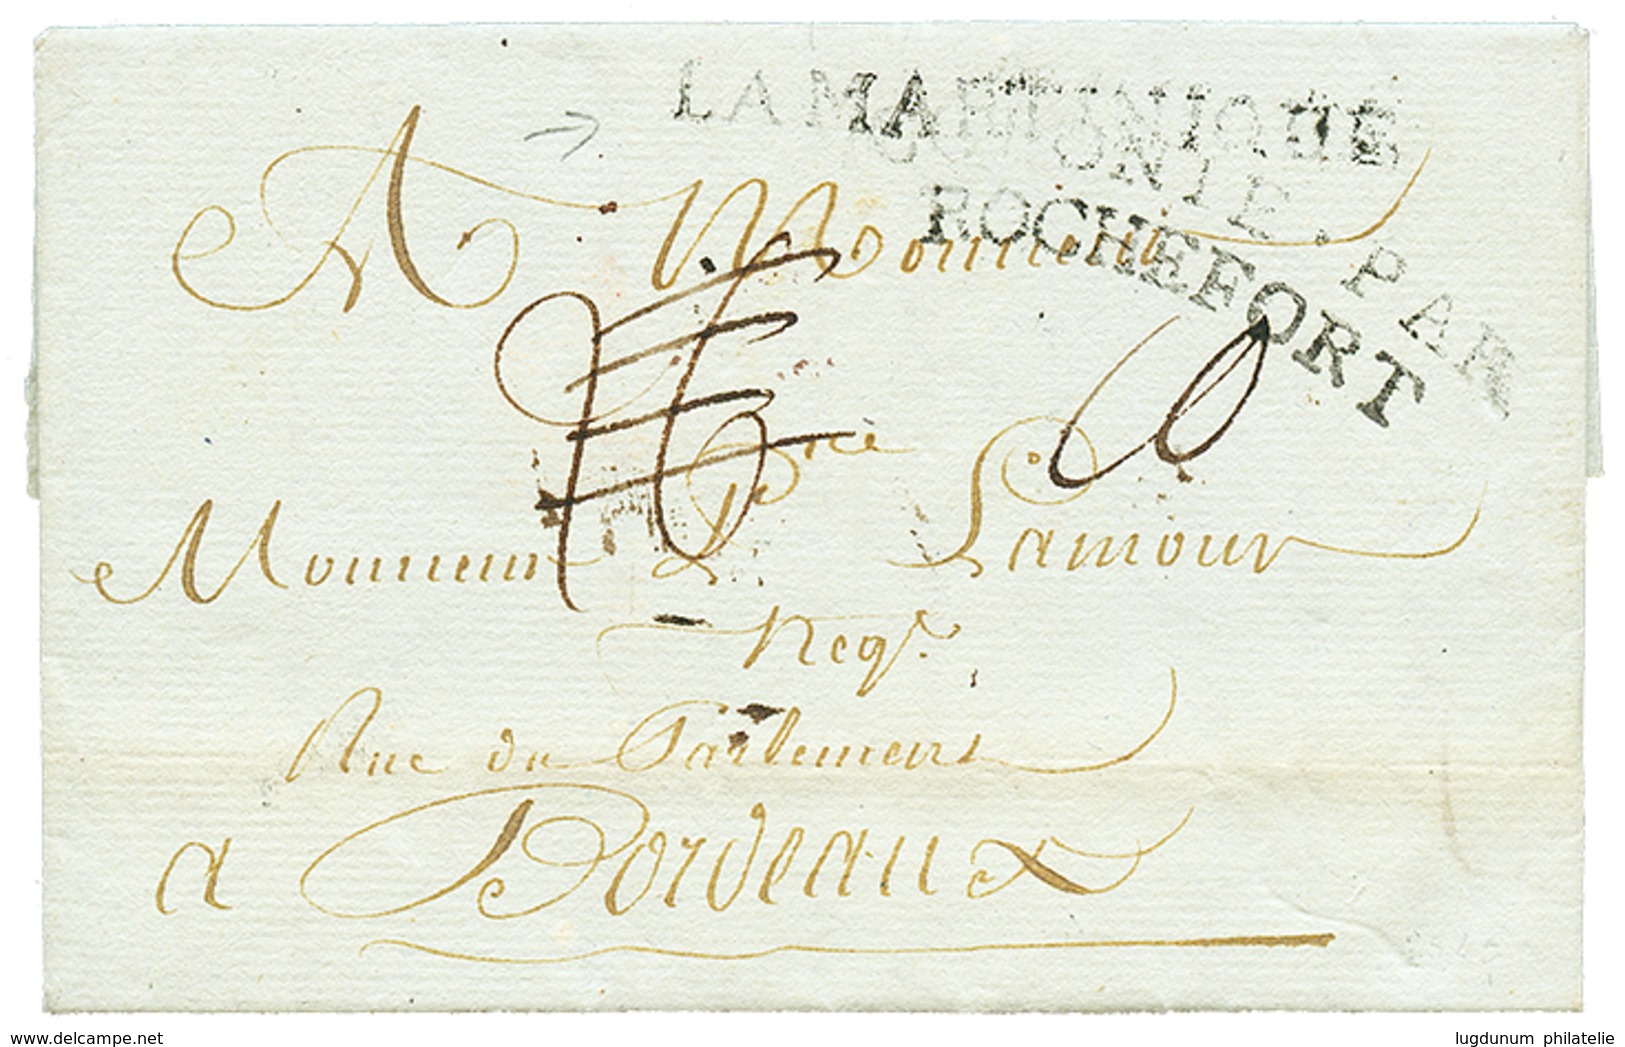 LA MARTINIQUE
COLONIE . PAR
ROCHEFORT
A Monsieur
10
Monsieur Pre Lamour
Negt.
Rue du Parlement
a Bordeaux
www.delcampe.net
lugdunum philatelie